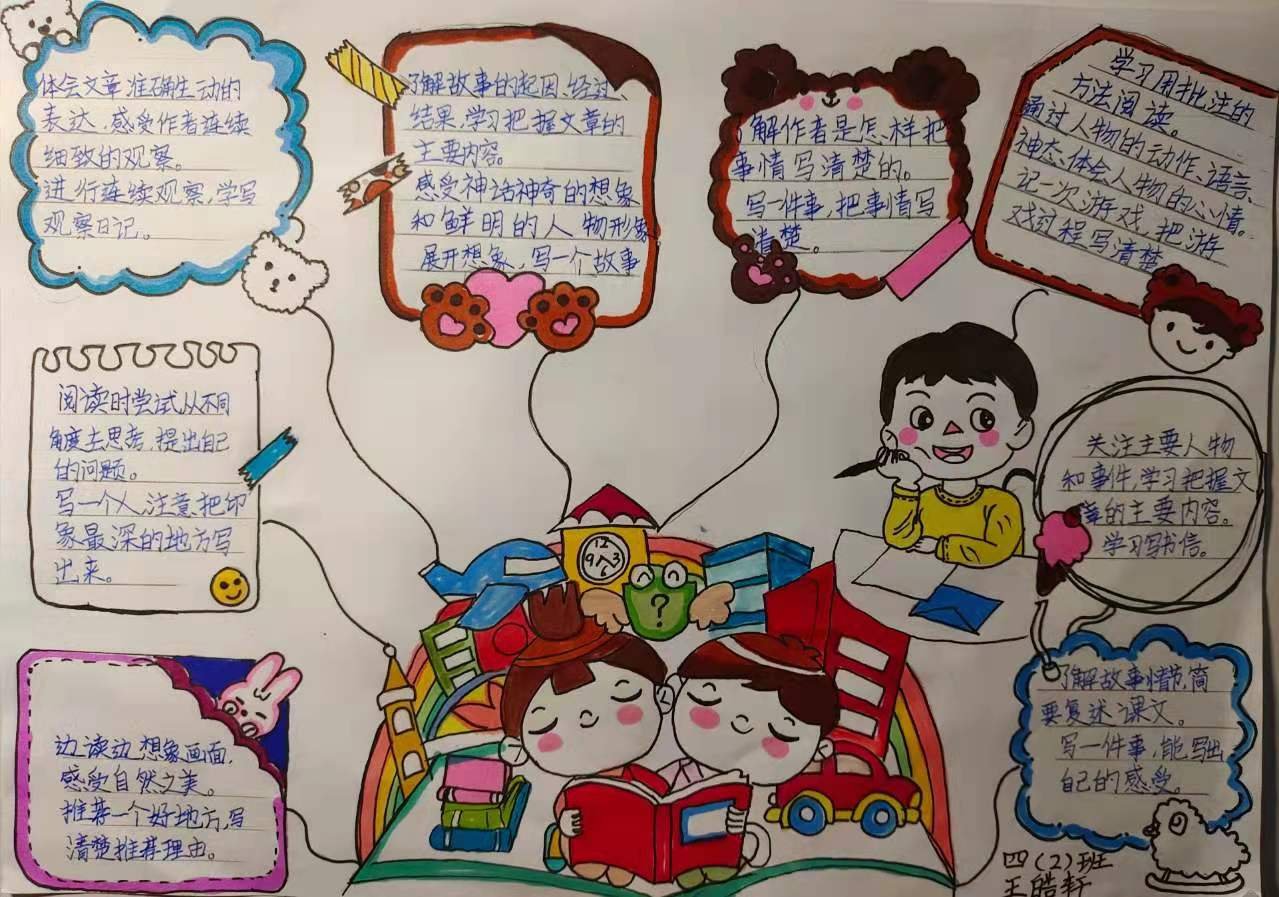 体会文章准确生动的
表达，感受作者连续
细致的观察。
进行连续观察，学写
观察日记。
了解故事的起因、经过、
结果，学习把握文章的
主要内容。
感受神话神奇的想象
和鲜明的人物形象
展开想象，写一个故事
了解作者是怎样把
事情写清楚的。
写一件事，把事情写
清楚。
学习用批注的
方法阅读。
通过人物的动作、语言、
神态、体会人物的心情。
记一次游戏，把游
戏过程写清楚
阅读时尝试从不同
角度去思考，提出自己
的问题。
写一个人，注意把印
象最深的地方写
出来。
关注主要人物
和事件，学习把握文
章的主要内容。
学习写书信。
边读边想象画面，
感受自然之美。
推荐一个好地方，写
清楚推荐理由。
了解故事情节，简
要复述课文。
写一件事，能写出
自己的感受。
12
9 3
6
?
四（2）班
王皓轩